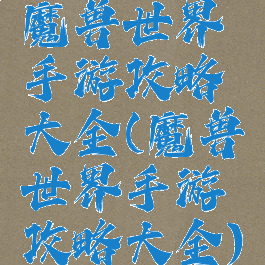 魔兽世界
手游攻略
大全(魔兽
世界手游
攻略大全)